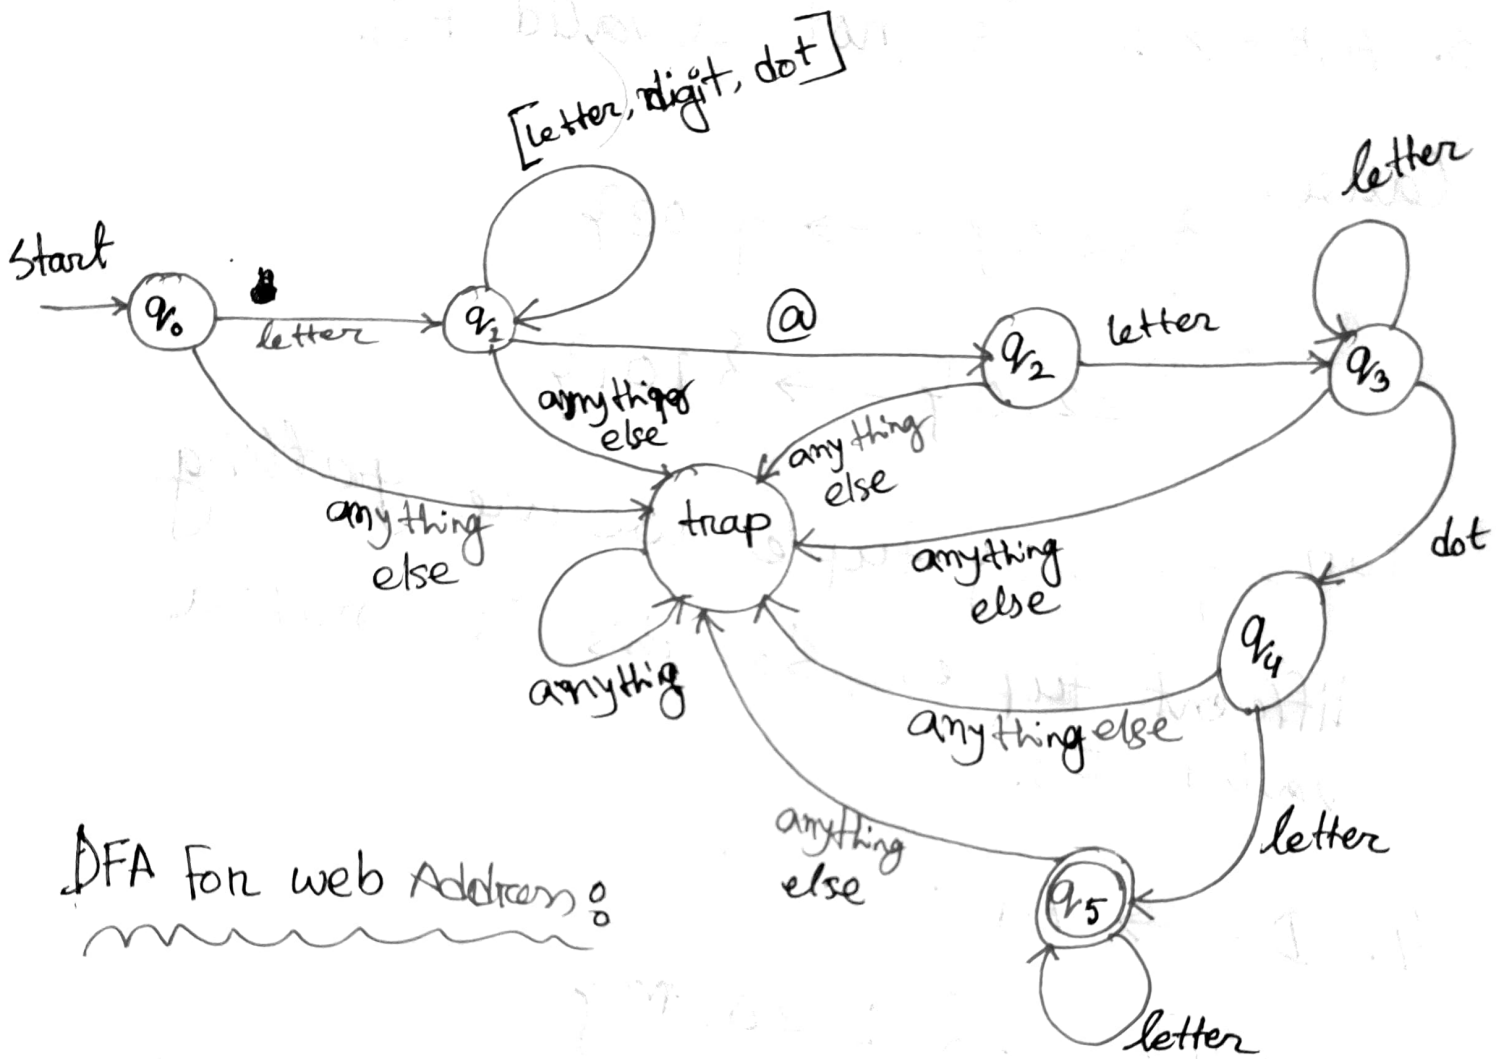 [letter, digit, dot]
letter
Start
q0
letter
q1
@
q2
letter
q3
anything
else
anything
else
trap
anything
else
anything
else
dot
q4
anythig
anything else
anything
else
letter
q5
letter
DFA For web Address: